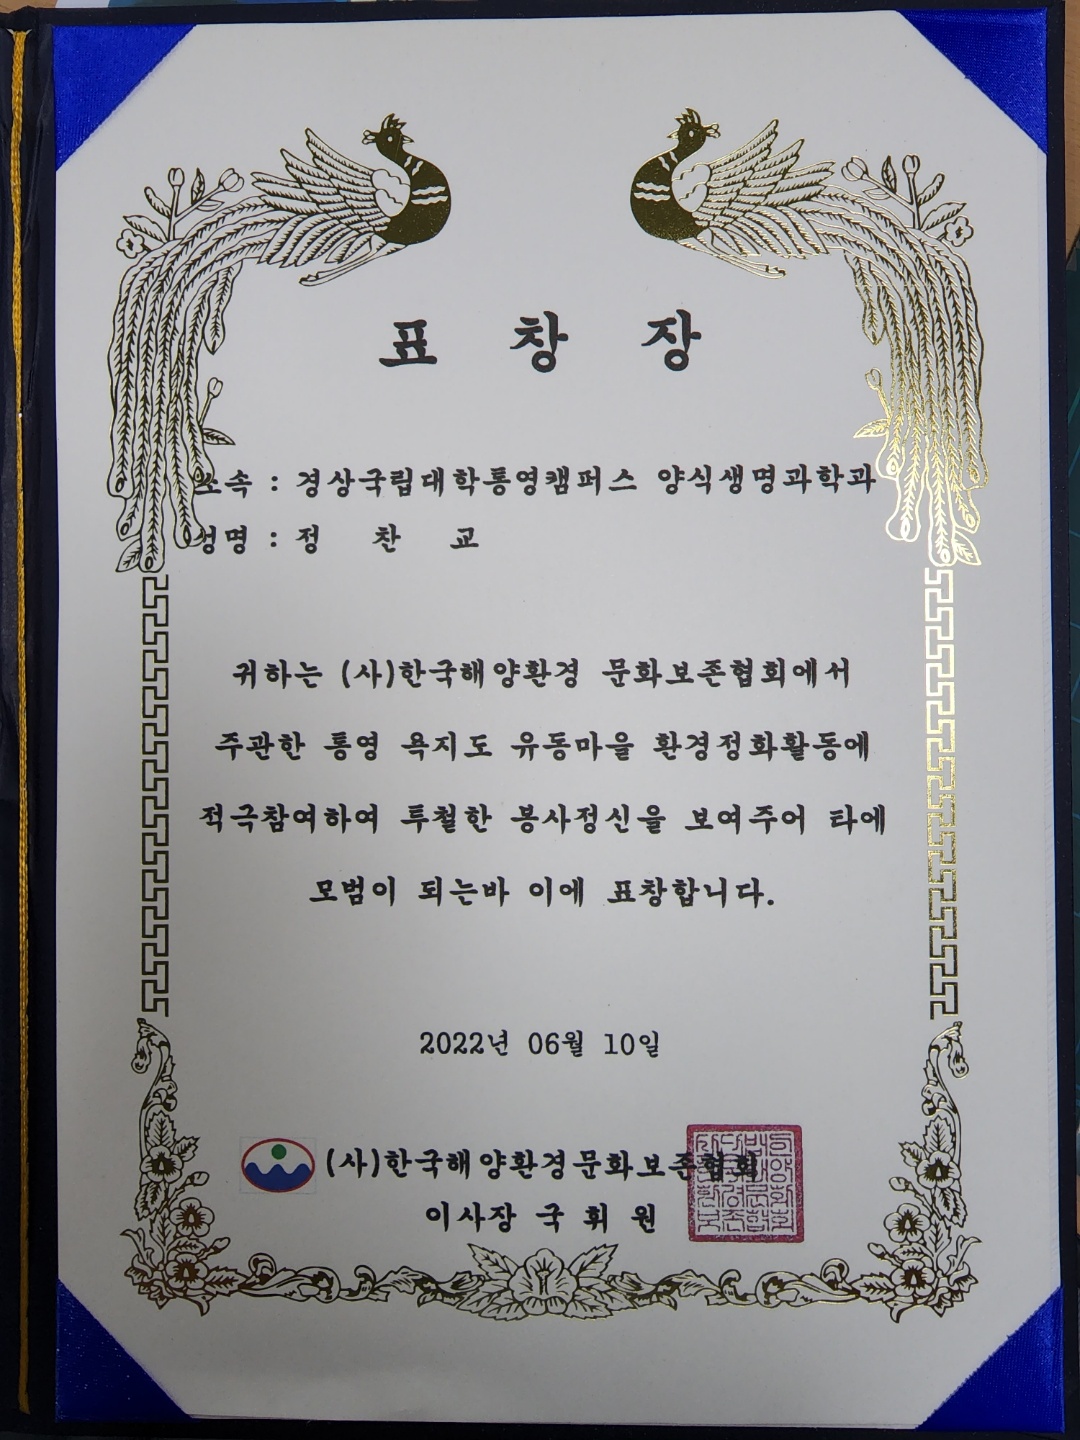 표 창 장
소속 : 경상국립대학통영캠퍼스 양식생명과학과
성명 : 정 찬 교
귀하는 (사)한국해양환경 문화보존협회에서
주관한 통영 욕지도 유동마을 환경정화활동에
적극참여하여 투철한 봉사정신을 보여주어 타에
모범이 되는바 이에 표창합니다.
2022년 06월 10일
(사)한국해양환경문화보존협회
이사장 국 휘 원